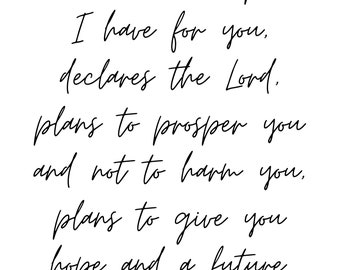 I have for you,
declares the Lord,
plans to prosper you
and not to harm you,
plans to give you
hope and a future